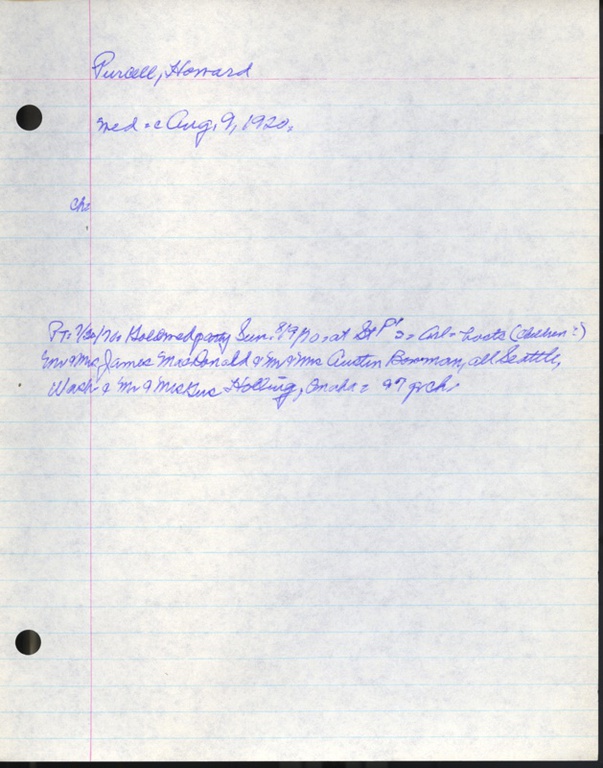 Purcell, Howard
med = c Aug. 9, 1920.
Ch:
PT: 7/30/70: Gold wed party Sun. 8/9/70, at St P's = Arl = hosts (children?)
Mr & Mrs James MacDonald & Mr & Mrs Austin Bowman, all Seattle,
Wash. & Mr & Mrs Holling, Omaha = 27 grch.